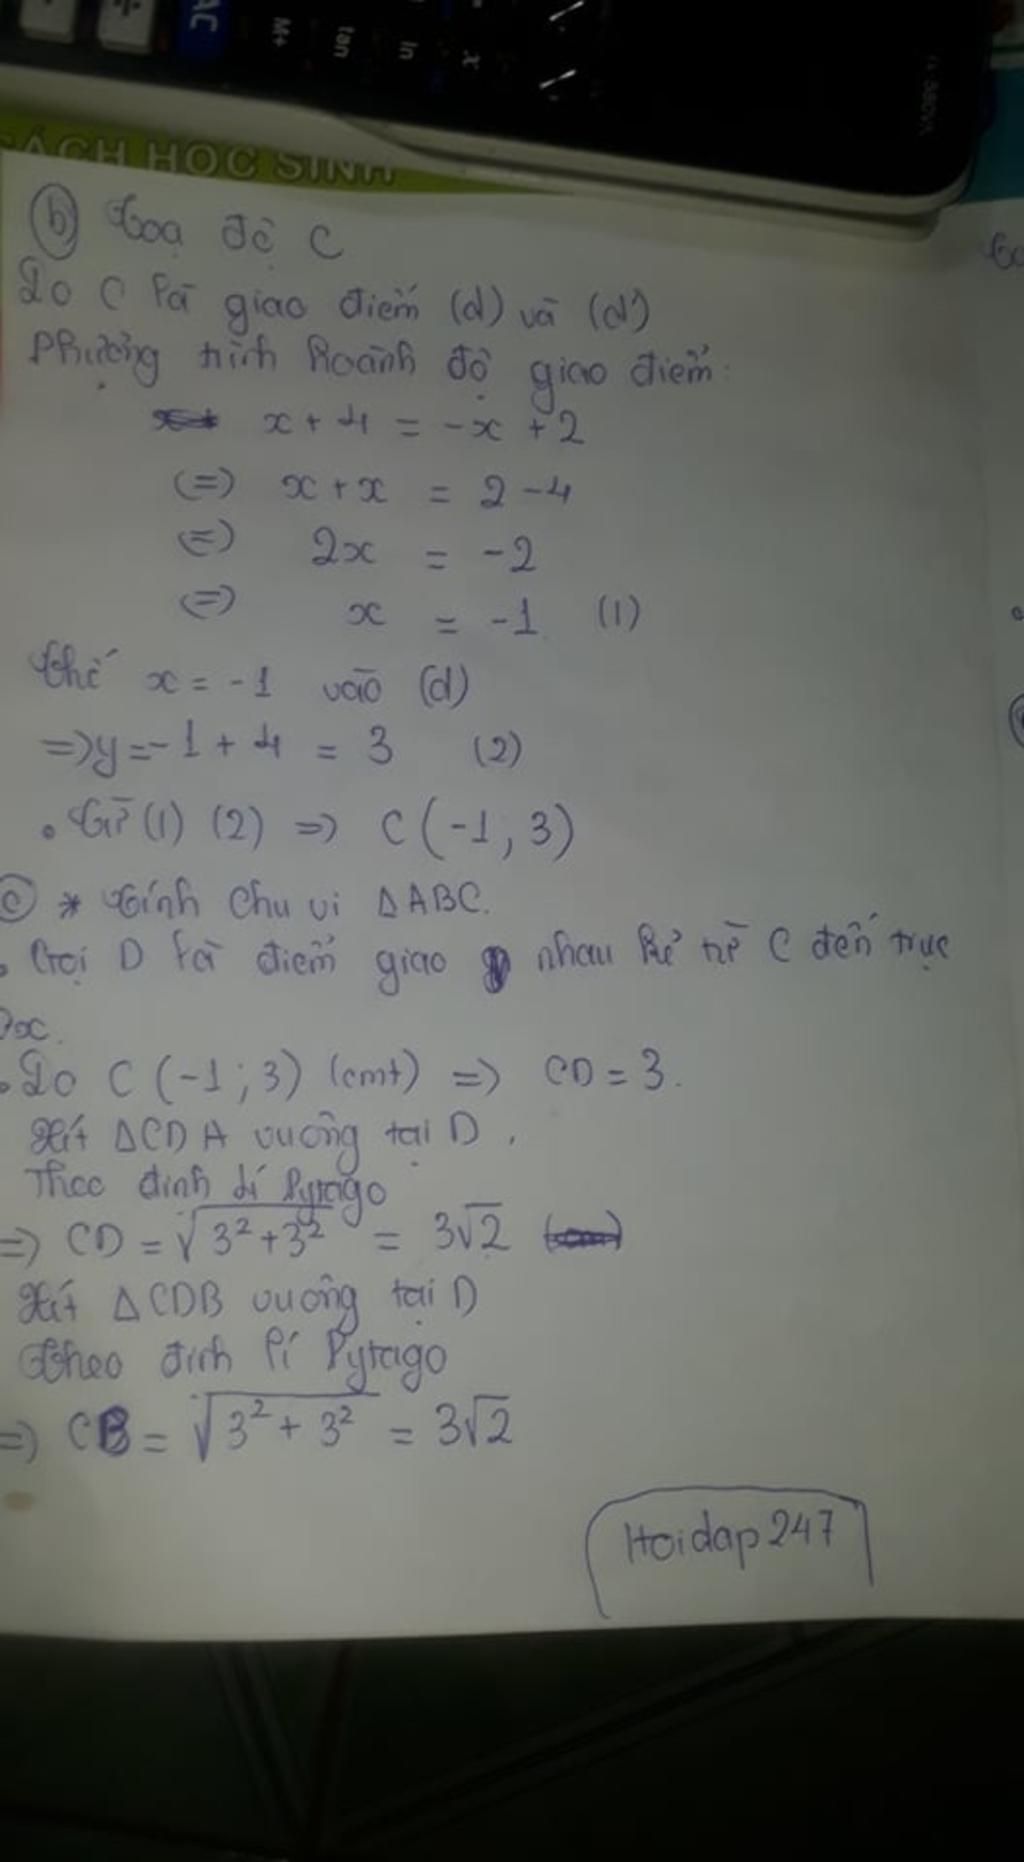 AC
M+
tan
ln
x
SÁCH HỌC SINH
b) Toạ độ C
Do C là giao điểm (d) và (d')
Phương trình hoành độ giao điểm:
x + 4 = -x + 2
(=) x + x = 2 - 4
(=) 2x = -2
(=) x = -1 (1)
Thế x = -1 vào (d)
=> y = -1 + 4 = 3 (2)
. Từ (1) (2) => C (-1; 3)
c) * Tính chu vi ΔABC.
. Gọi D là điểm giao nhau kẻ từ C đến trục
Ox.
. Do C (-1; 3) (cmt) => CD = 3.
Xét ΔCDA vuông tại D,
Theo định lí Pytago
=> CD = √(3² + 3²) = 3√2
Xét ΔCDB vuông tại D
Theo định lí Pytago
=> CB = √(3² + 3²) = 3√2
Hoidap247